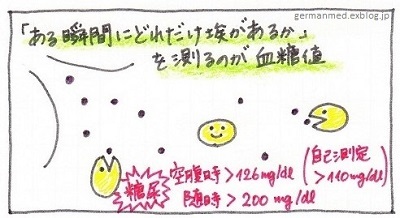 germanmed.exblog.jp
「ある瞬間にどれだけ埃があるか」
を測るのが血糖値
糖尿
空腹時>126mg/dl
(自己測定
>110mg/dl)
随時>200mg/dl